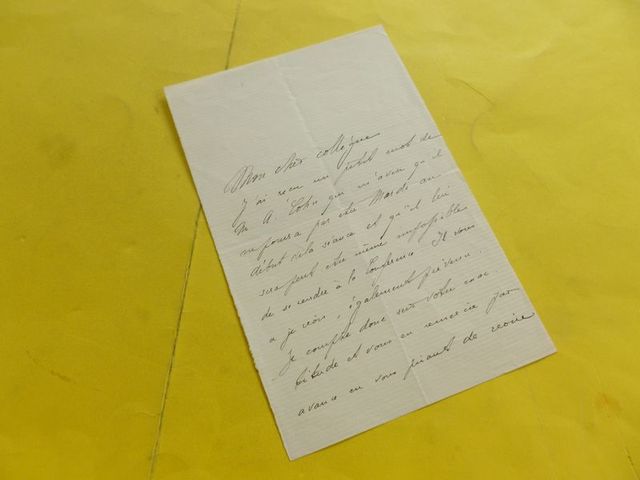 Mon cher collègue
J'ai reçu un petit mot de
M A. Cohn qui m'avise qu'il
ne pourra pas être Mardi au
début de la séance et qu'il lui
sera peut être même impossible
de se rendre à la Conférence. Il vous
a je crois, également prévenu.
Je compte donc sur votre exac
titude et vous en remercie par
avance en vous priant de croire